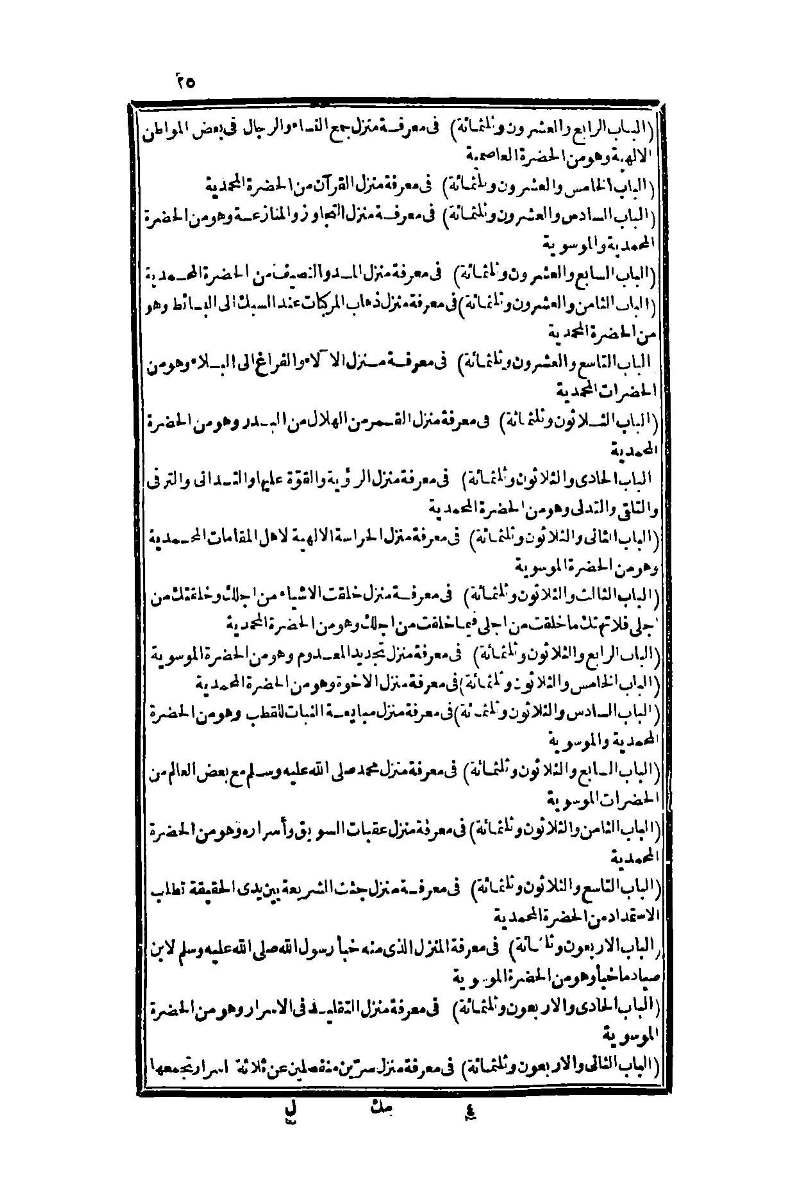 ٢٥
(الباب الرابع والعشرون وثلثمائة) فى معرفة منزل جمع النساء والرجال فى بعض المواطن
الالهية وهو من الحضرة العاصمية
(الباب الخامس والعشرون وثلثمائة) فى معرفة منزل القرآن من الحضرة المحمدية
(الباب السادس والعشرون وثلثمائة) فى معرفة منزل التحاور والمنازعة وهو من الحضرة
المحمدية والموسوية
(الباب السابع والعشرون وثلثمائة) فى معرفة منزل المد والنصيف من الحضرة المحمدية
(الباب الثامن والعشرون وثلثمائة) فى معرفة منزل ذهاب المركبات عند السبك الى البسائط وهو
من الحضرة المحمدية
الباب التاسع والعشرون وثلثمائة) فى معرفة منزل الآلاء والفراغ الى البلاء وهو من
الحضرات المحمدية
(الباب الثلاثون وثلثمائة) فى معرفة منزل القمر من الهلال من البدر وهو من الحضرة
المحمدية
الباب الحادى والثلاثون وثلثمائة) فى معرفة منزل الرؤية والقوة عليها والتدانى والترقى
والتلقى والتدلى وهو من الحضرة المحمدية
(الباب الثانى والثلاثون وثلثمائة) فى معرفة منزل الحراسة الالهية لاهل المقامات المحمدية
وهو من الحضرة الموسوية
(الباب الثالث والثلاثون وثلثمائة) فى معرفة منزل خلقت الاشياء من اجلك وخلقتك من
اجلى فلا تهتك ما خلقت من اجلى فيما خلقت من اجلك وهو من الحضرة المحمدية
(الباب الرابع والثلاثون وثلثمائة) فى معرفة منزل تجديد المعدوم وهو من الحضرة الموسوية
(الباب الخامس والثلاثون وثلثمائة) فى معرفة منزل الاخوة وهو من الحضرة المحمدية
(الباب السادس والثلاثون وثلثمائة) فى معرفة منزل مبايعة النبات للقطب وهو من الحضرة
المحمدية والموسوية
(الباب السابع والثلاثون وثلثمائة) فى معرفة منزل محمد صلى الله عليه وسلم مع بعض العالم من
الحضرات الموسوية
(الباب الثامن والثلاثون وثلثمائة) فى معرفة منزل عقبات السويق وأسراره وهو من الحضرة
المحمدية
(الباب التاسع والثلاثون وثلثمائة) فى معرفة منزل جثت الشريعة بين يدى الحقيقة تطلب
الاستمداد من الحضرة المحمدية
(الباب الاربعون وثلثمائة) فى معرفة المنزل الذى منه خبأ رسول الله صلى الله عليه وسلم لابن
صياد ما خبأ وهو من الحضرة الموسوية
(الباب الحادى والاربعون وثلثمائة) فى معرفة منزل التقليد فى الاسرار وهو من الحضرة
الموسوية
(الباب الثانى والاربعون وثلثمائة) فى معرفة منزل سرّين منفصلين عن ثلاثة اسرار تجمعها
٤ مك ل